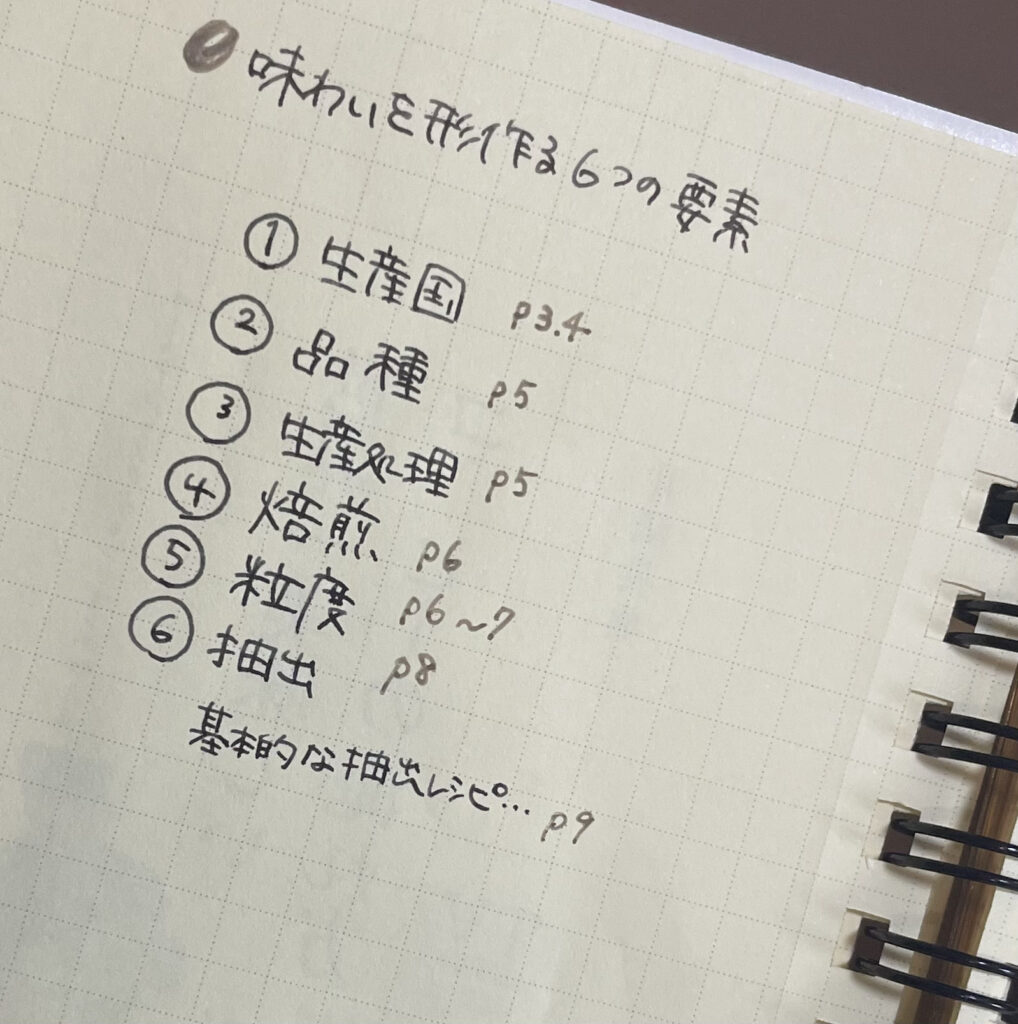 味わいを形作る6つの要素
① 生産国 p3.4
② 品種 p5
③ 生産処理 p5
④ 焙煎 p6
⑤ 粒度 p6~7
⑥ 抽出 p8
基本的な抽出レシピ... p9